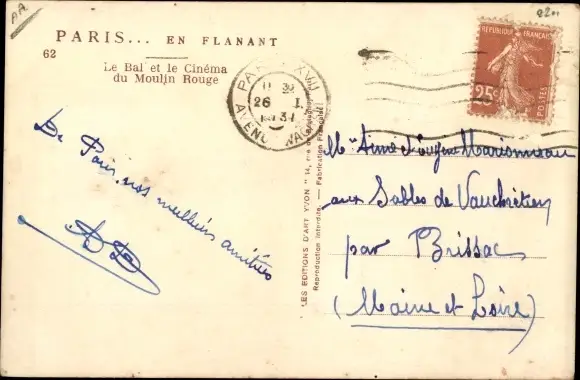 AA
PARIS... EN FLANANT
62
Le Bal et le Cinéma
du Moulin Rouge
REPUBLIQUE FRANÇAISE
25c
POSTES
PARIS XVII
26 - 1
31
AVENUE
De Paris, nos meilleurs amitiés
AD
LES EDITIONS D'ART YVON" 14, rue
Reproduction interdite. — Fabrication Française
Aimé Marionneau
aux Sables de Vauchrétien
par Brissac
(Maine et Loire)